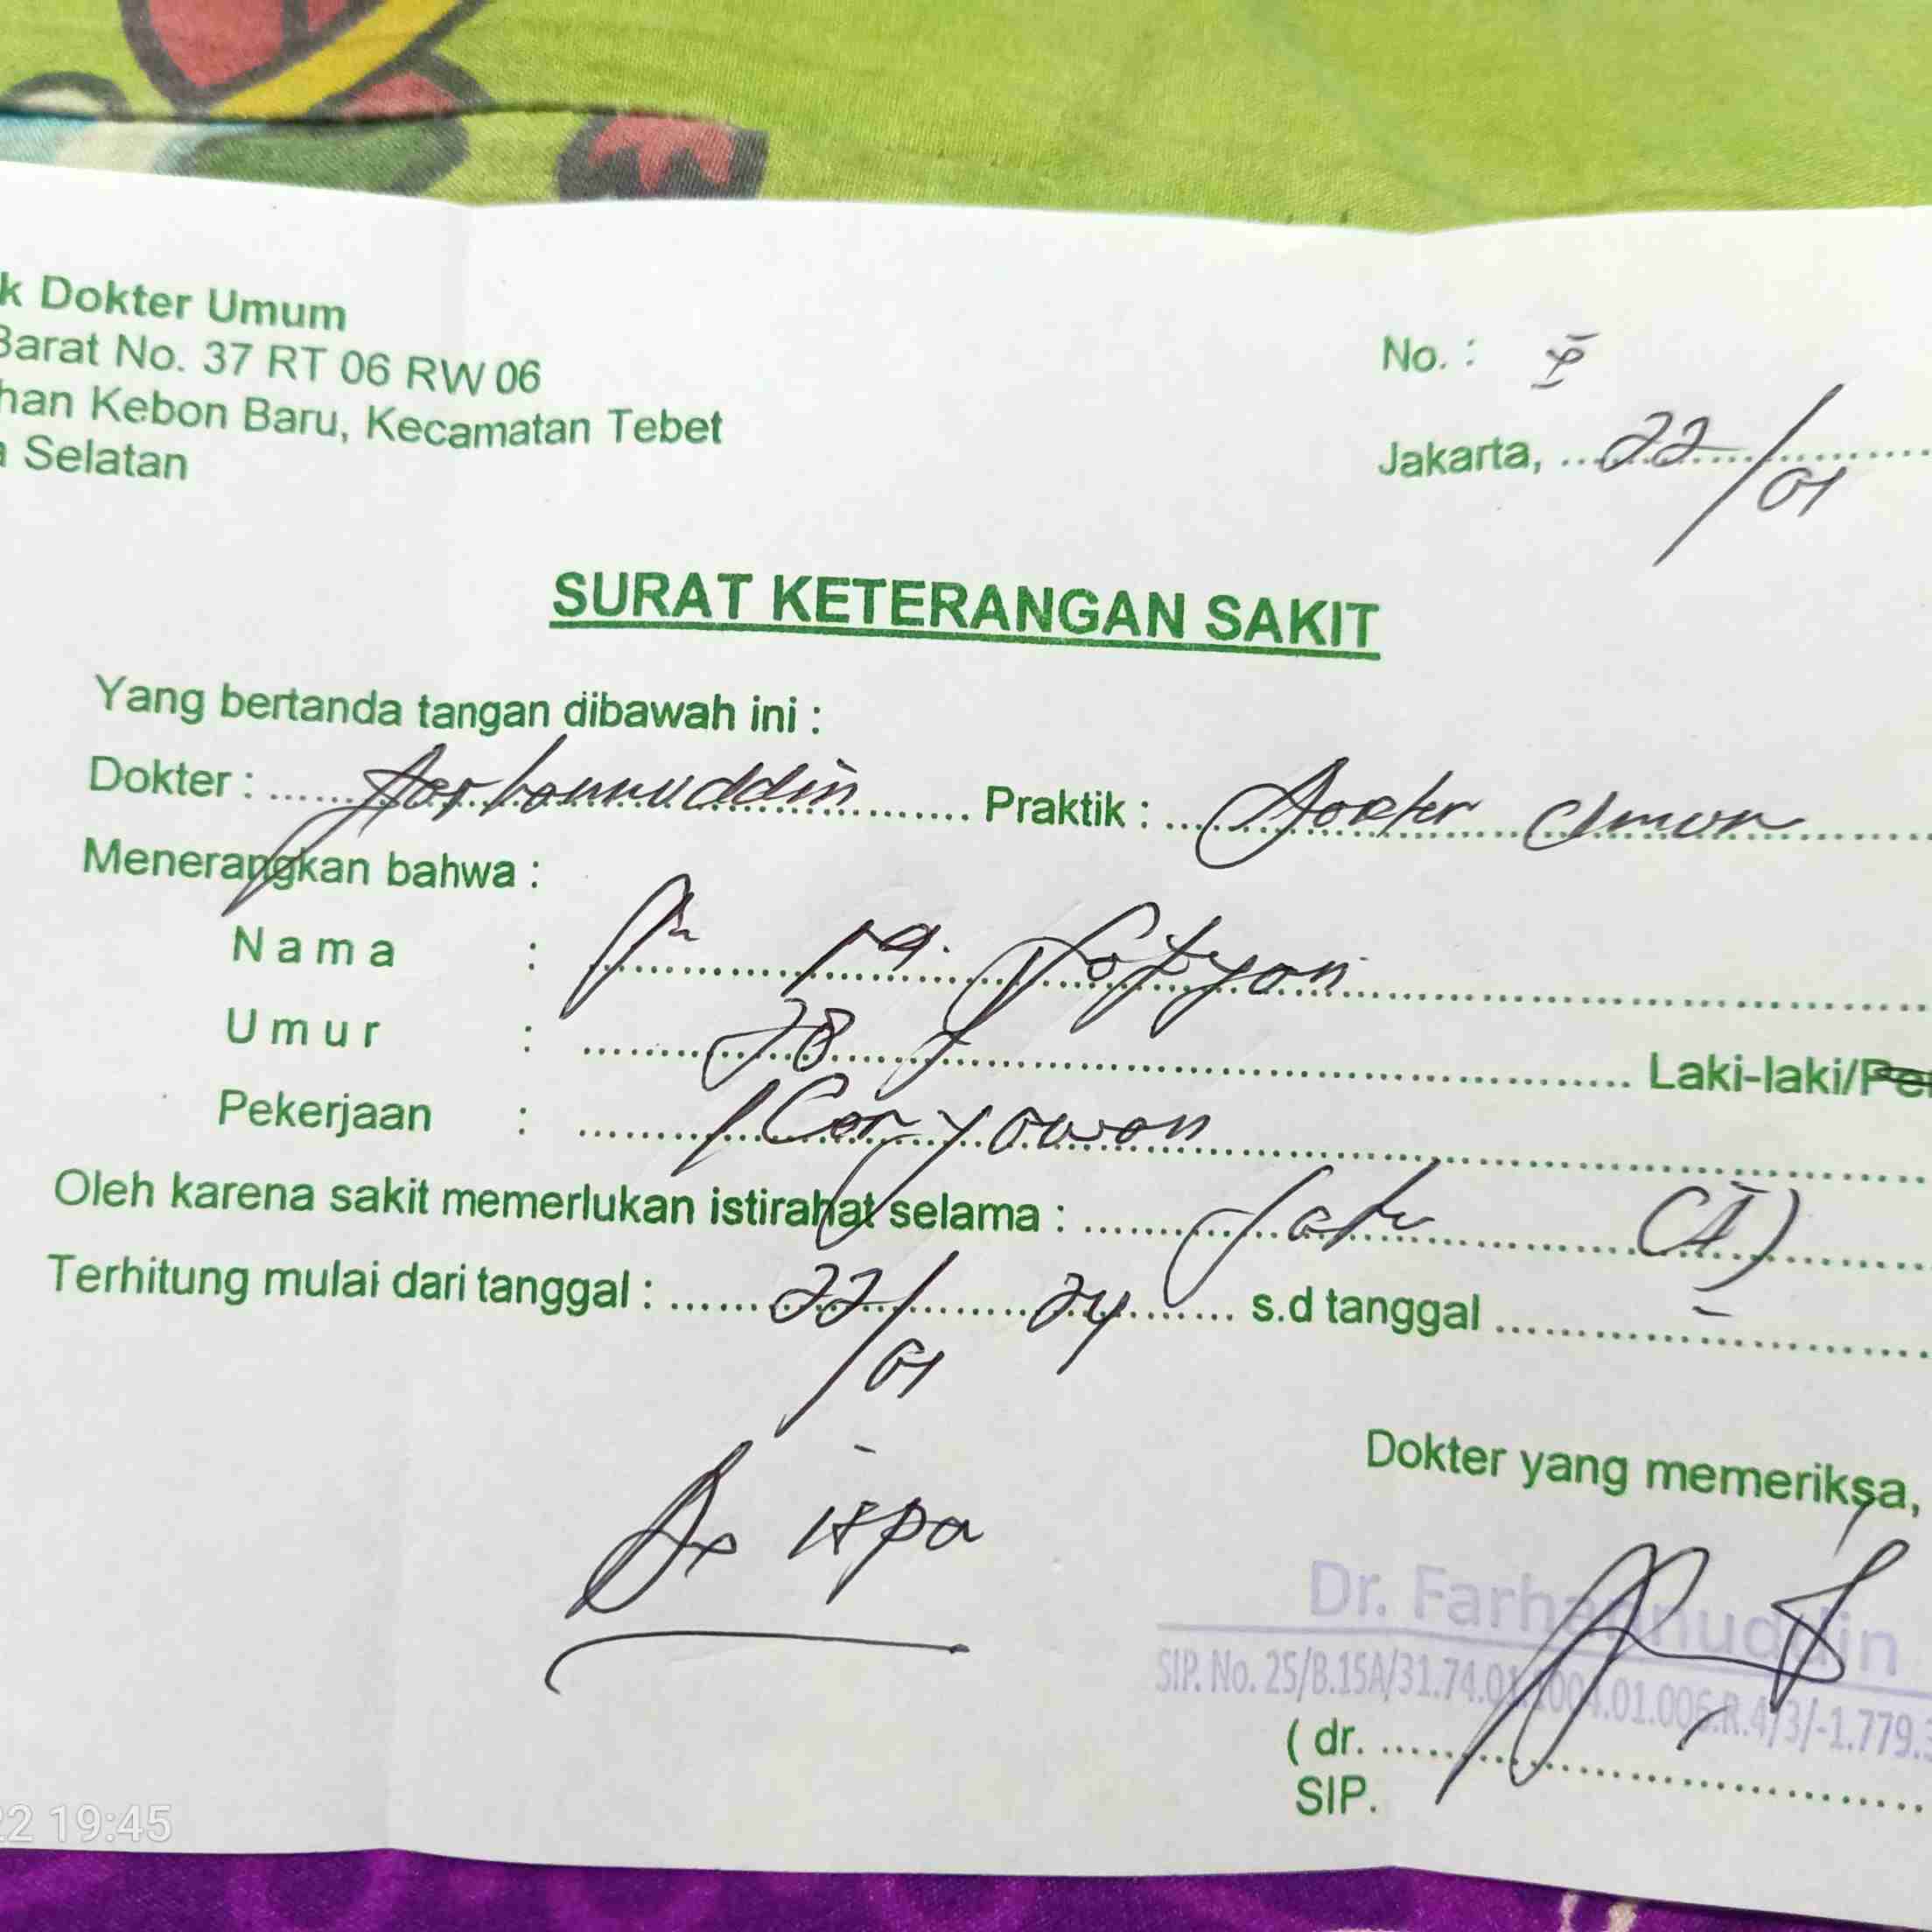 k Dokter Umum
Barat No. 37 RT 06 RW 06
han Kebon Baru, Kecamatan Tebet
a Selatan
No. :
Jakarta, 22/01
SURAT KETERANGAN SAKIT
Yang bertanda tangan dibawah ini :
Dokter : Farhannuddin Praktik : Dokter Umum
Menerangkan bahwa :
Nama :
Umur : 28 T Laki-laki/Per
Pekerjaan : Karyawan
Oleh karena sakit memerlukan istirahat selama : Satu (I)
Terhitung mulai dari tanggal : 22/01 24 s.d tanggal -
Dx ispa
Dokter yang memeriksa,
Dr. Farhannuddin
SIP. No. 25/B.15A/31.74.01.1004.01.006.R.4/3/-1.779.3
( dr.
SIP.
22 19:45